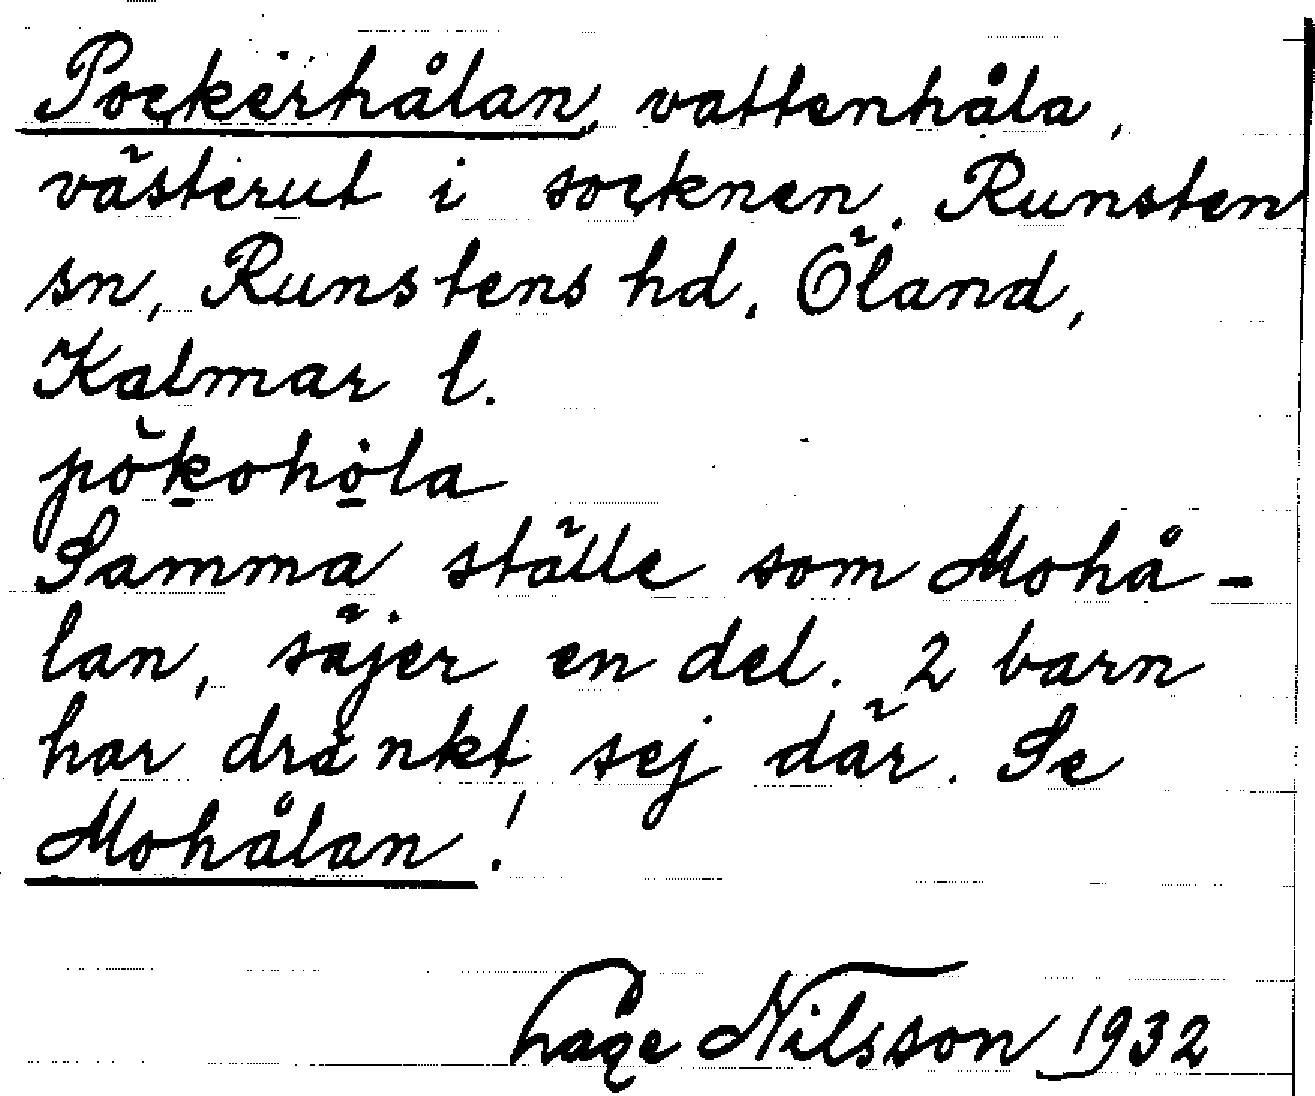 Pockerhålan, vattenhåla,
västerut i socknen. Runsten
sn, Runstens hd. Öland,
Kalmar l.
pökohola
Samma ställe som Mohå-
lan, säjer en del. 2 barn
har dränkt sej där. Se
Mohålan!
Hage Nilsson 1932